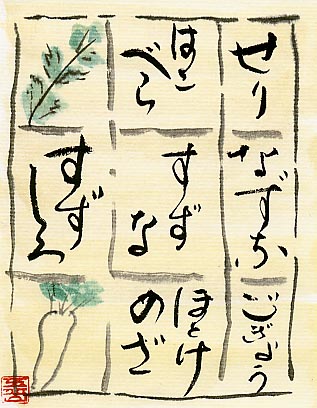 せり
なずな
ごぎょう
はこ
べら
すず
な
ほとけ
のざ
すず
しろ